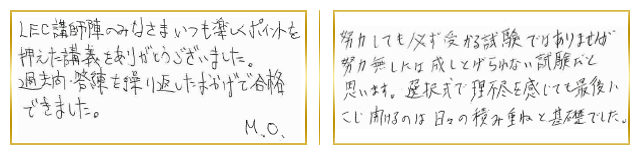 LEC講師陣のみなさまいつも楽しくポイントを
押えた講義をありがとうございました。
過去問・答練を繰り返したおかげで合格
できました。
M.O.
努力しても必ず受かる試験ではありませんが
努力無しには成しとげられない試験だと
思います。選択式で理不尽を感じても最後に
こじ開けるのは日々の積み重ねと基礎でした。